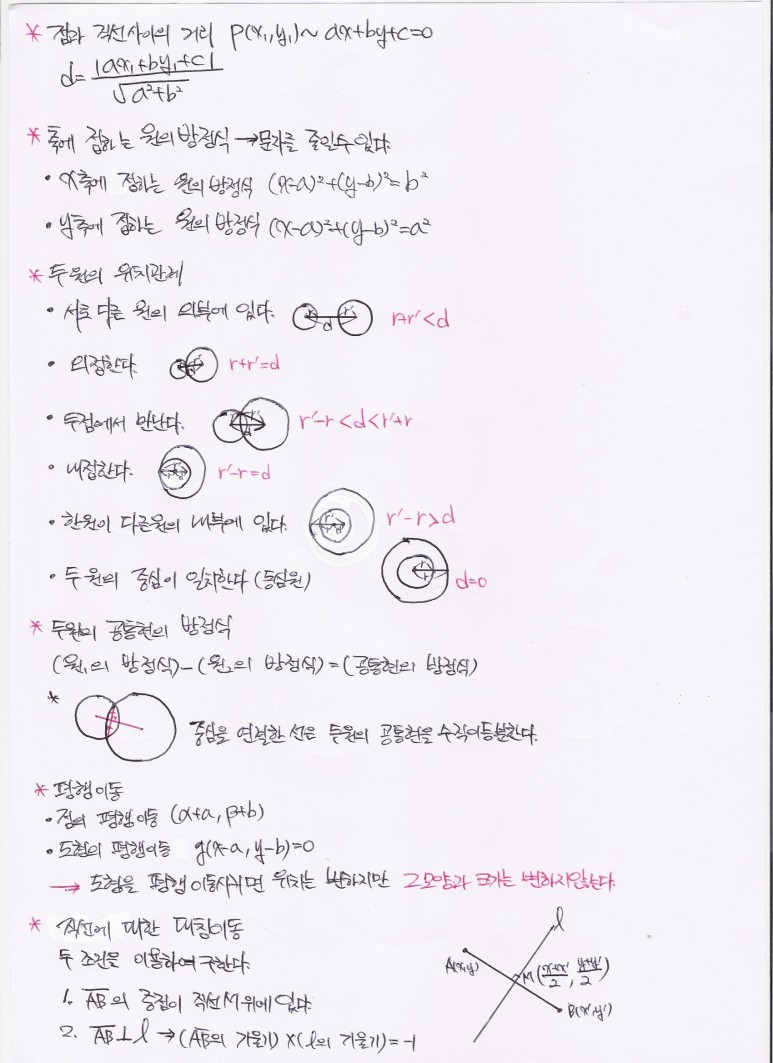 * 점과 직선사이의 거리 P(x₁,y₁)~ax+by+c=0
d=|ax₁+by₁+c|/√a²+b²
* 축에 접하는 원의 방정식 →문자를 줄일수 있다.
• x축에 접하는 원의 방정식 (x-a)²+(y-b)²=b²
• y축에 접하는 원의 방정식 (x-a)²+(y-b)²=a²
* 두 원의 위치관계
• 서로 다른 원의 외부에 있다. r r' d r+r'<d
• 외접한다. r+r'=d
• 두점에서 만난다. r'-r<d<r'+r
• 내접한다. r'-r=d
• 한원이 다른원의 내부에 있다. r'-r>d
• 두 원의 중심이 일치한다 (동심원) d=0
* 두원의 공통현의 방정식
(원₁의 방정식)-(원₂의 방정식)=(공통현의 방정식)
* 중심을 연결한 선은 두원의 공통현을 수직이등분한다.
* 평행이동
• 점의 평행이동 (α+a, β+b)
• 도형의 평행이동 g(x-a, y-b)=0
→ 도형을 평행이동시키면 위치는 변하지만 그모양과 크기는 변하지않는다.
* 직선에 대한 대칭이동
두 조건을 이용하여 구한다.
1. AB의 중점이 직선M위에 있다.
2. AB⊥l →(AB의 기울기)×(l의 기울기)=-1
l
A(x,y)
M(x+x'/2, y+y'/2)
B(x',y')